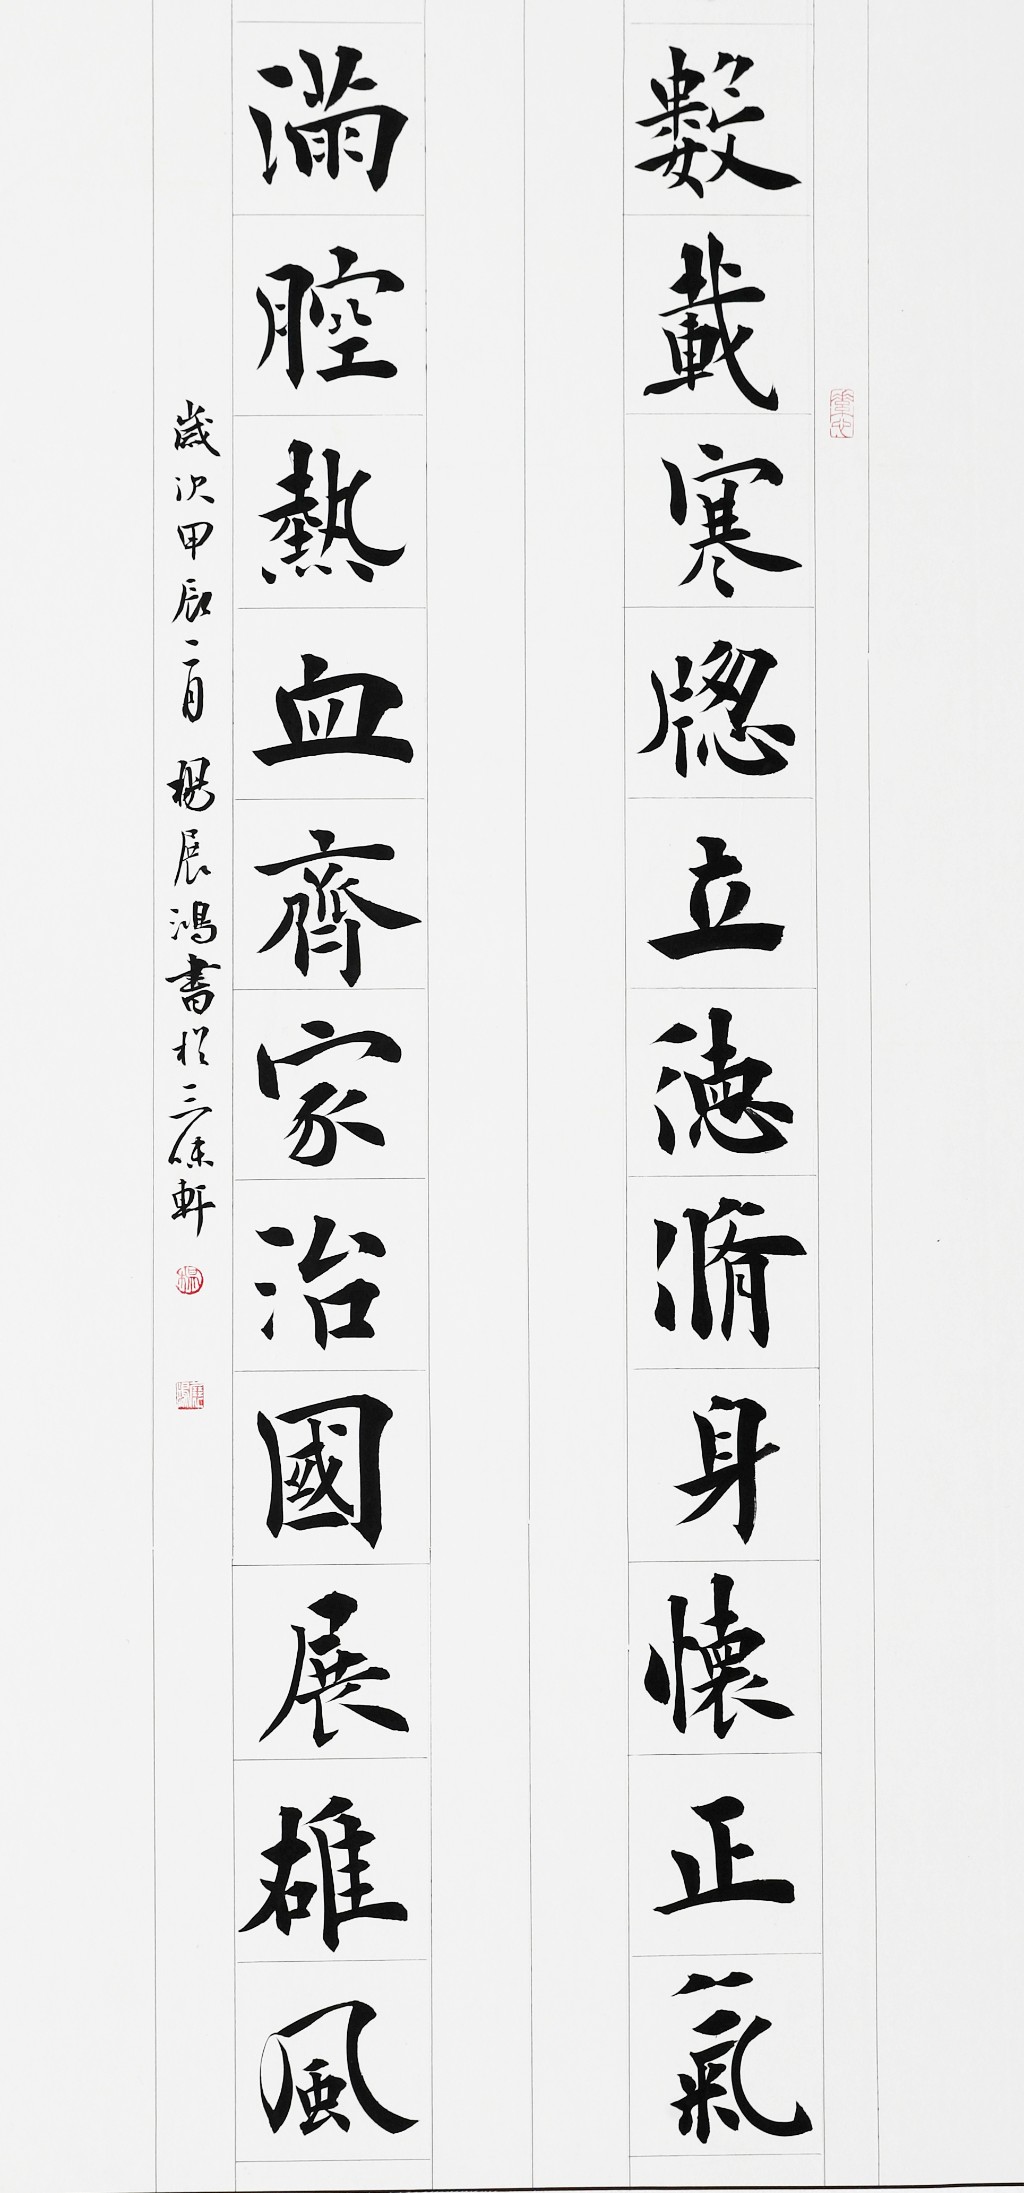 數載寒牕立德脩身懷正氣
滿腔熱血齊家治國展雄風
歲次甲辰二月楊展鴻書於三味軒